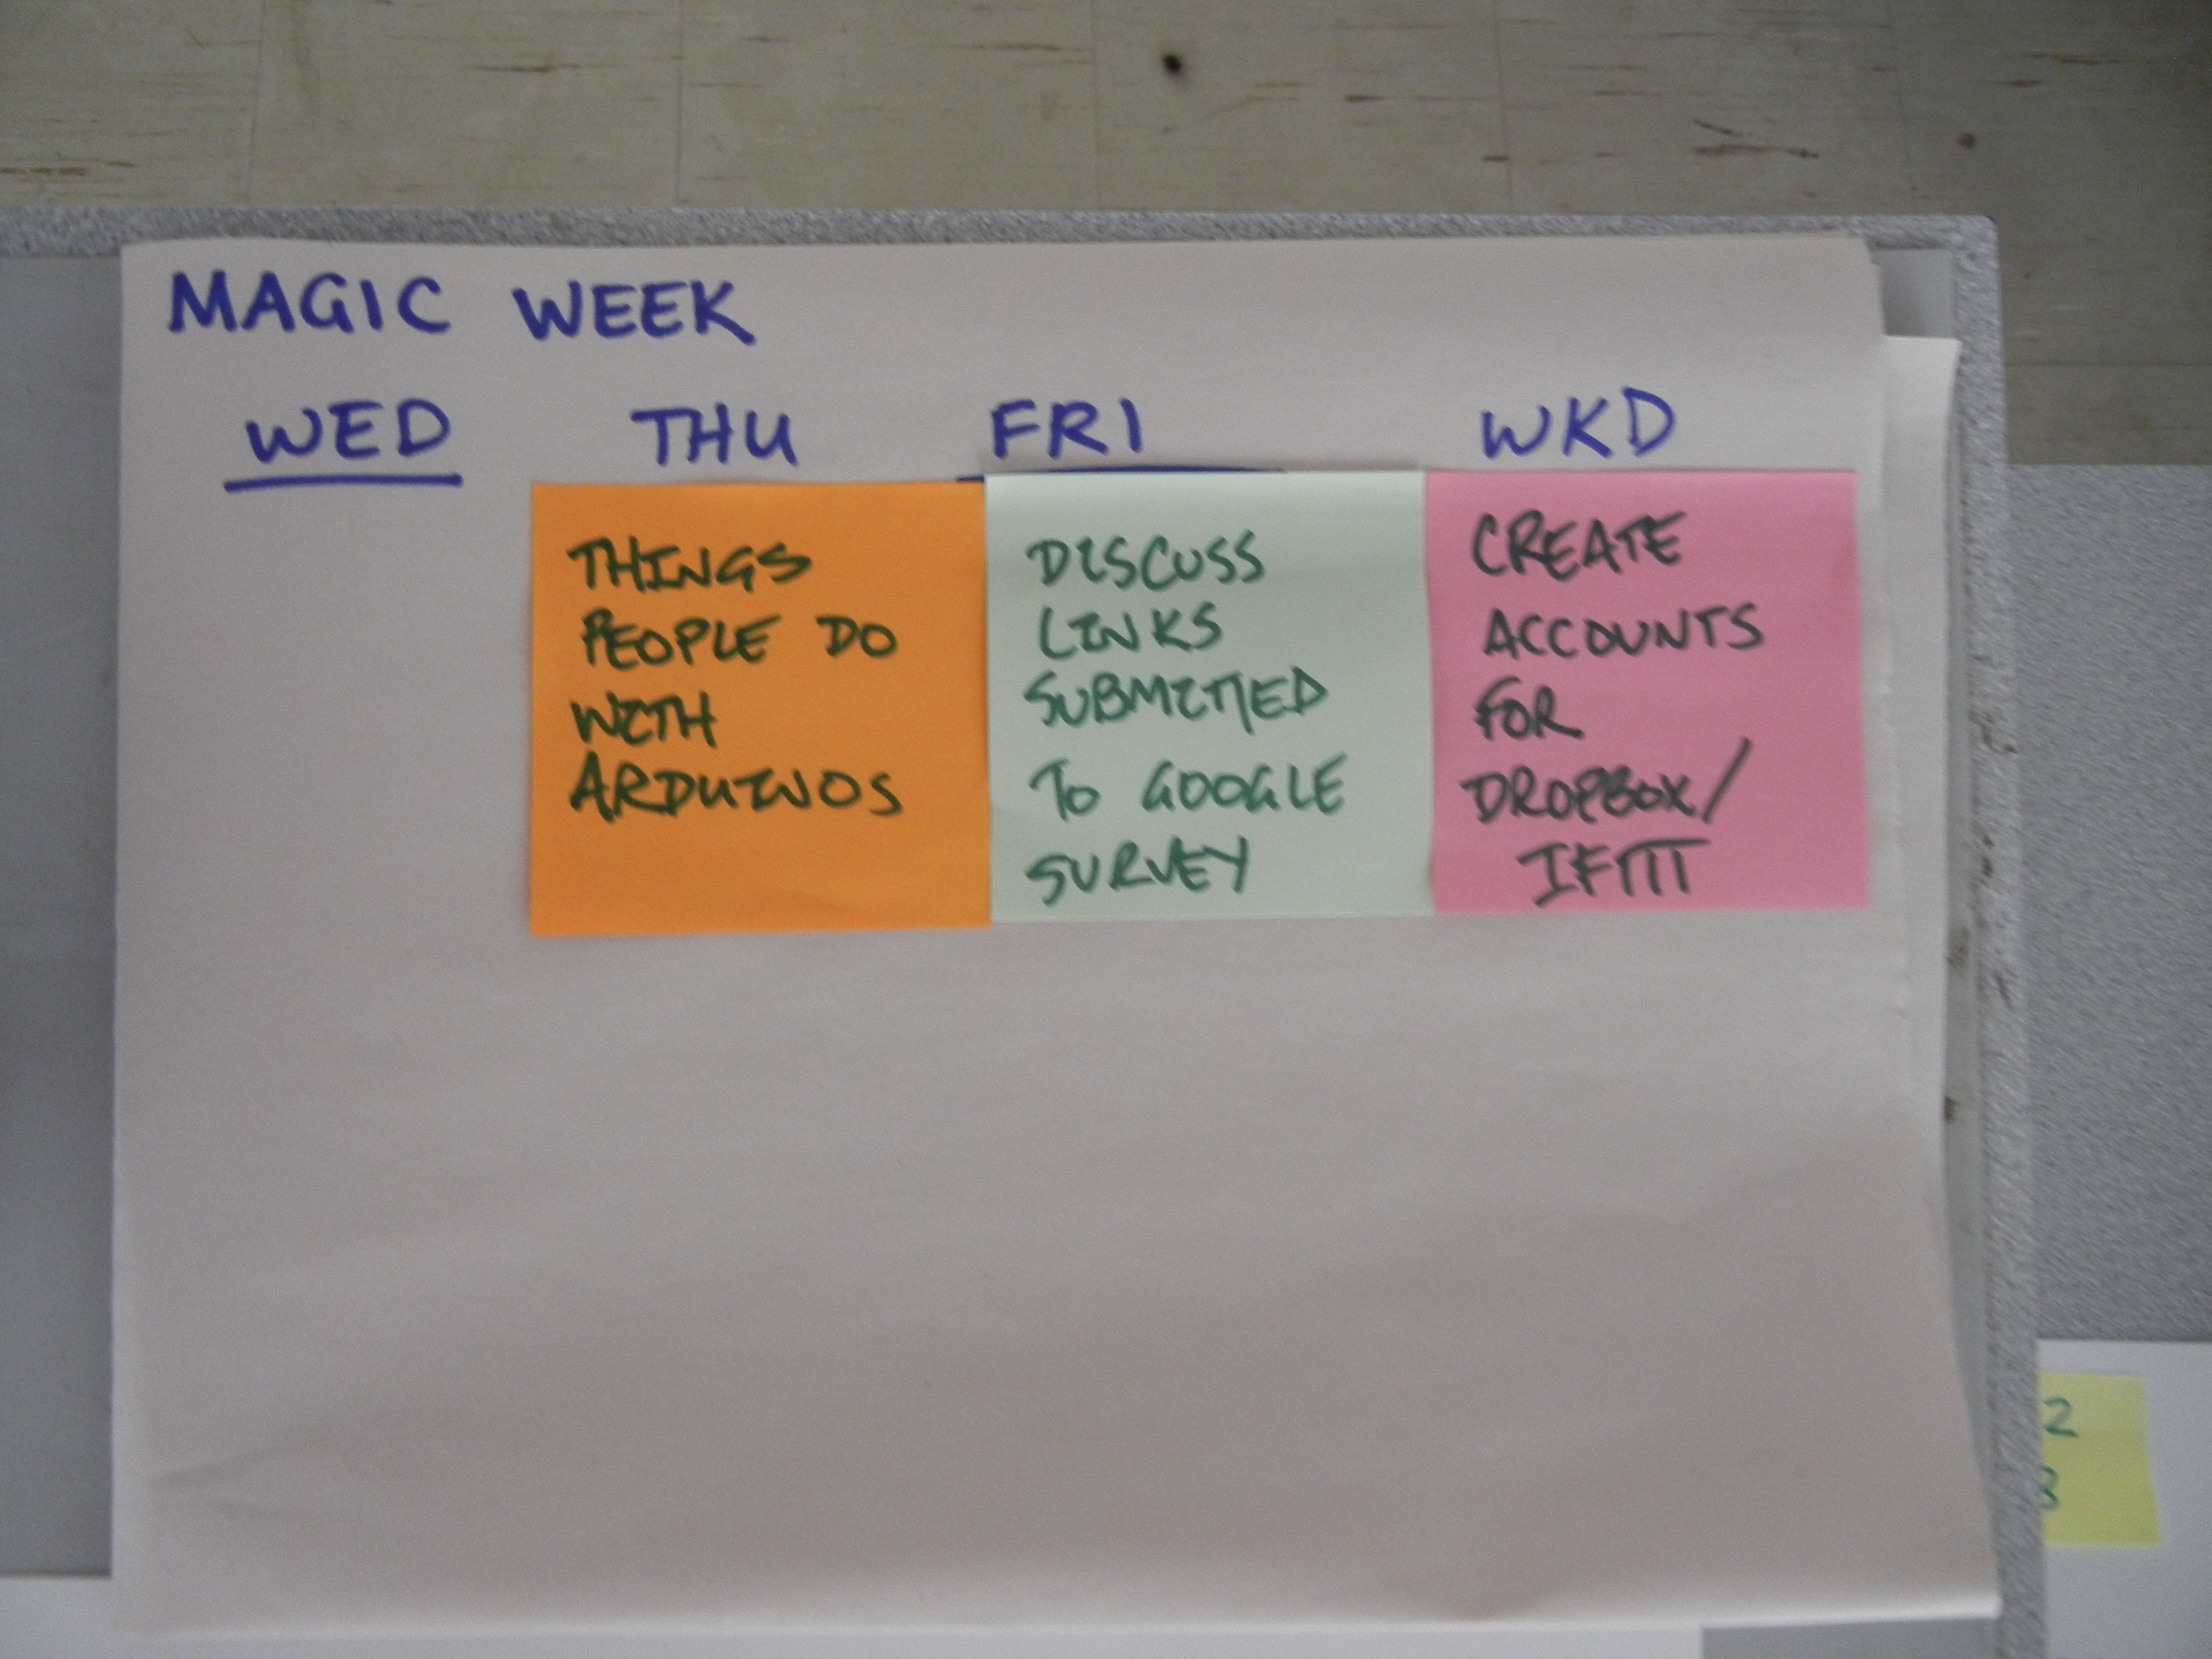 MAGIC WEEK
WED THU FRI WKD
THINGS
PEOPLE DO
WITH
ARDUINOS
DISCUSS
LINKS
SUBMITTED
TO GOOGLE
SURVEY
CREATE
ACCOUNTS
FOR
DROPBOX/
IFTTT
2
8